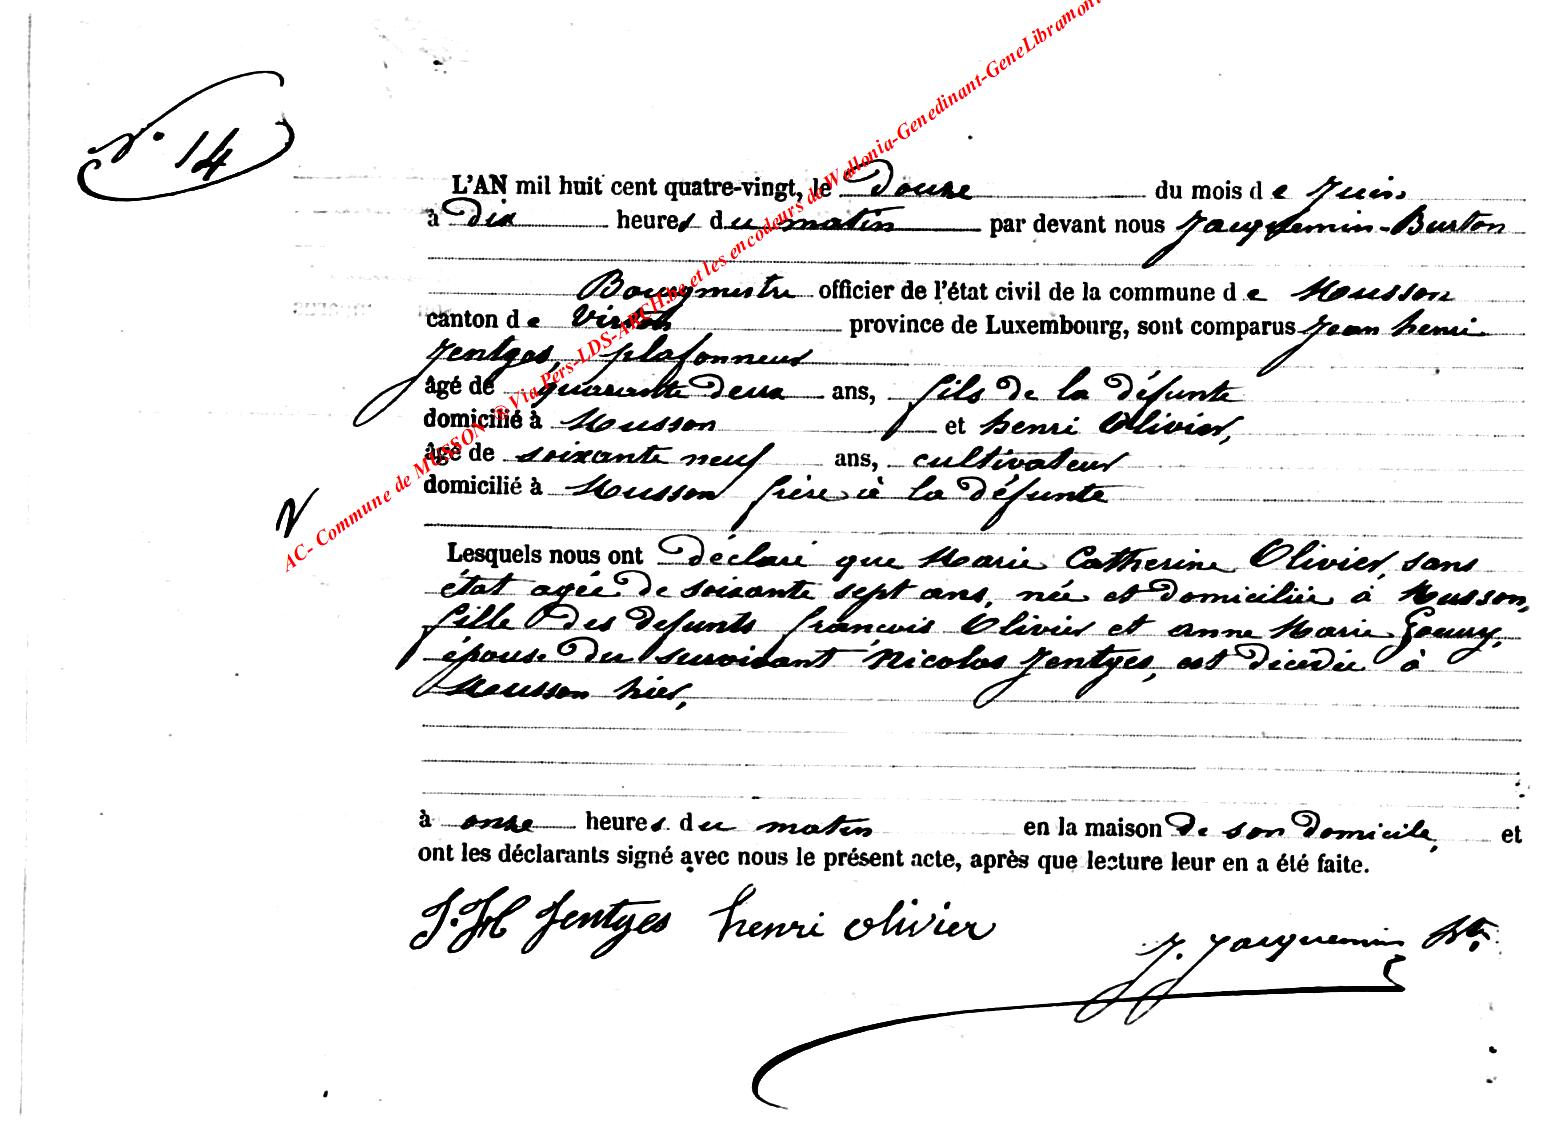 N° 14
L'AN mil huit cent quatre-vingt, le Douze du mois de Juin
à Dix heures du matin par devant nous Jacquemin-Burton
Bourgmestre officier de l'état civil de la commune de Musson
canton de Virton province de Luxembourg, sont comparus Jean henri
Jentges, plafonneur
âgé de quarante deux ans, fils de la défunte
domicilié à Musson et henri Olivier,
âgé de soixante neuf ans, cultivateur
domicilié à Musson frère à la défunte
Lesquels nous ont Déclaré que Marie Catherine Olivier, sans
état agée de soixante sept ans, née et domiciliée à Musson,
fille des défunts françois Olivier et anne Marie Goeury,
épouse du survivant Nicolas Jentges, est décédée à
Musson hier,
à onze heures du matin en la maison de son domicile, et
ont les déclarants signé avec nous le présent acte, après que lecture leur en a été faite.
J. H Jentges henri olivier
J. Jacquemin Bton
AC- Commune de MUSSON ® Via Pers-LDS-ARCH.be et les encodeurs de Wallonia-Genedinant-GeneLibramont